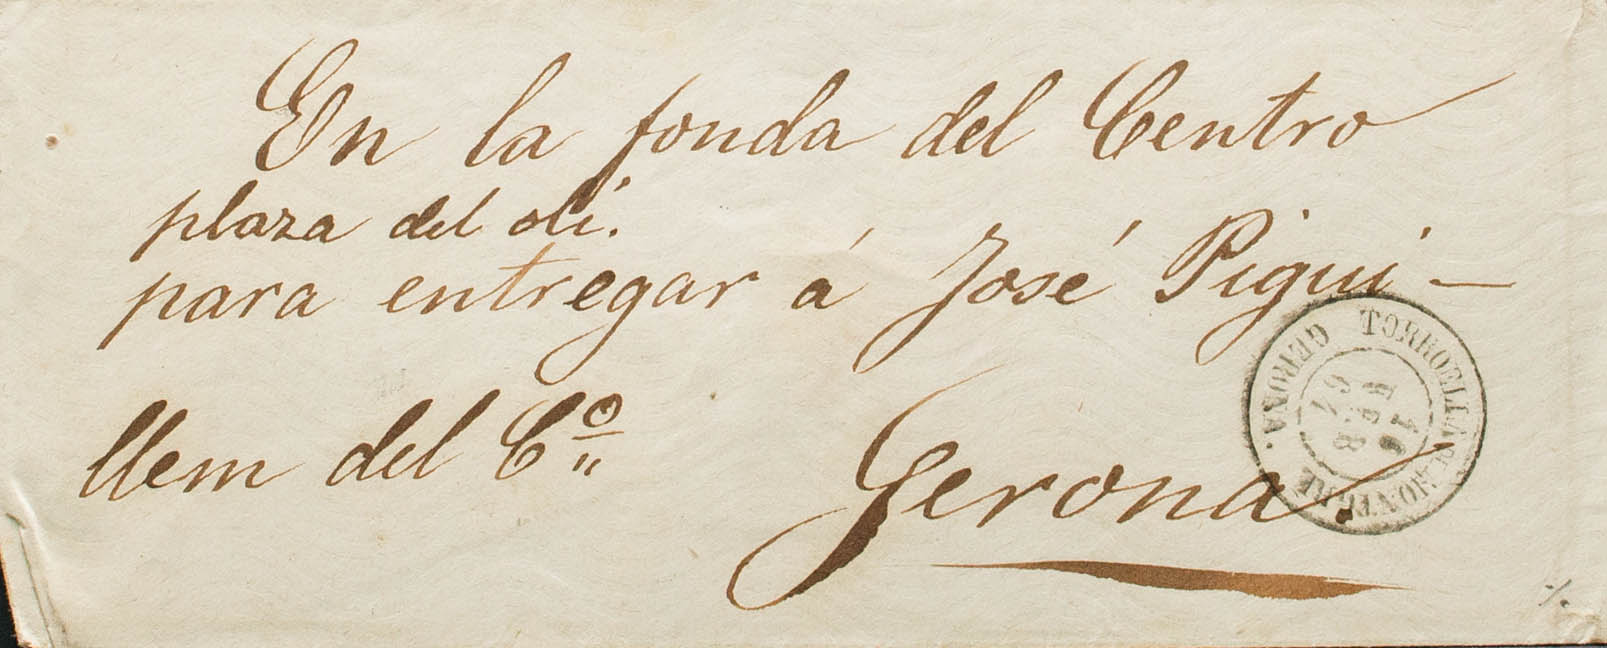 En la fonda del Centro
plaza del oli.
para entregar á José Pigui-
llem del C.º
Gerona.
TORROELLA DE MONTGRI
GERONA.
16
FEB
67